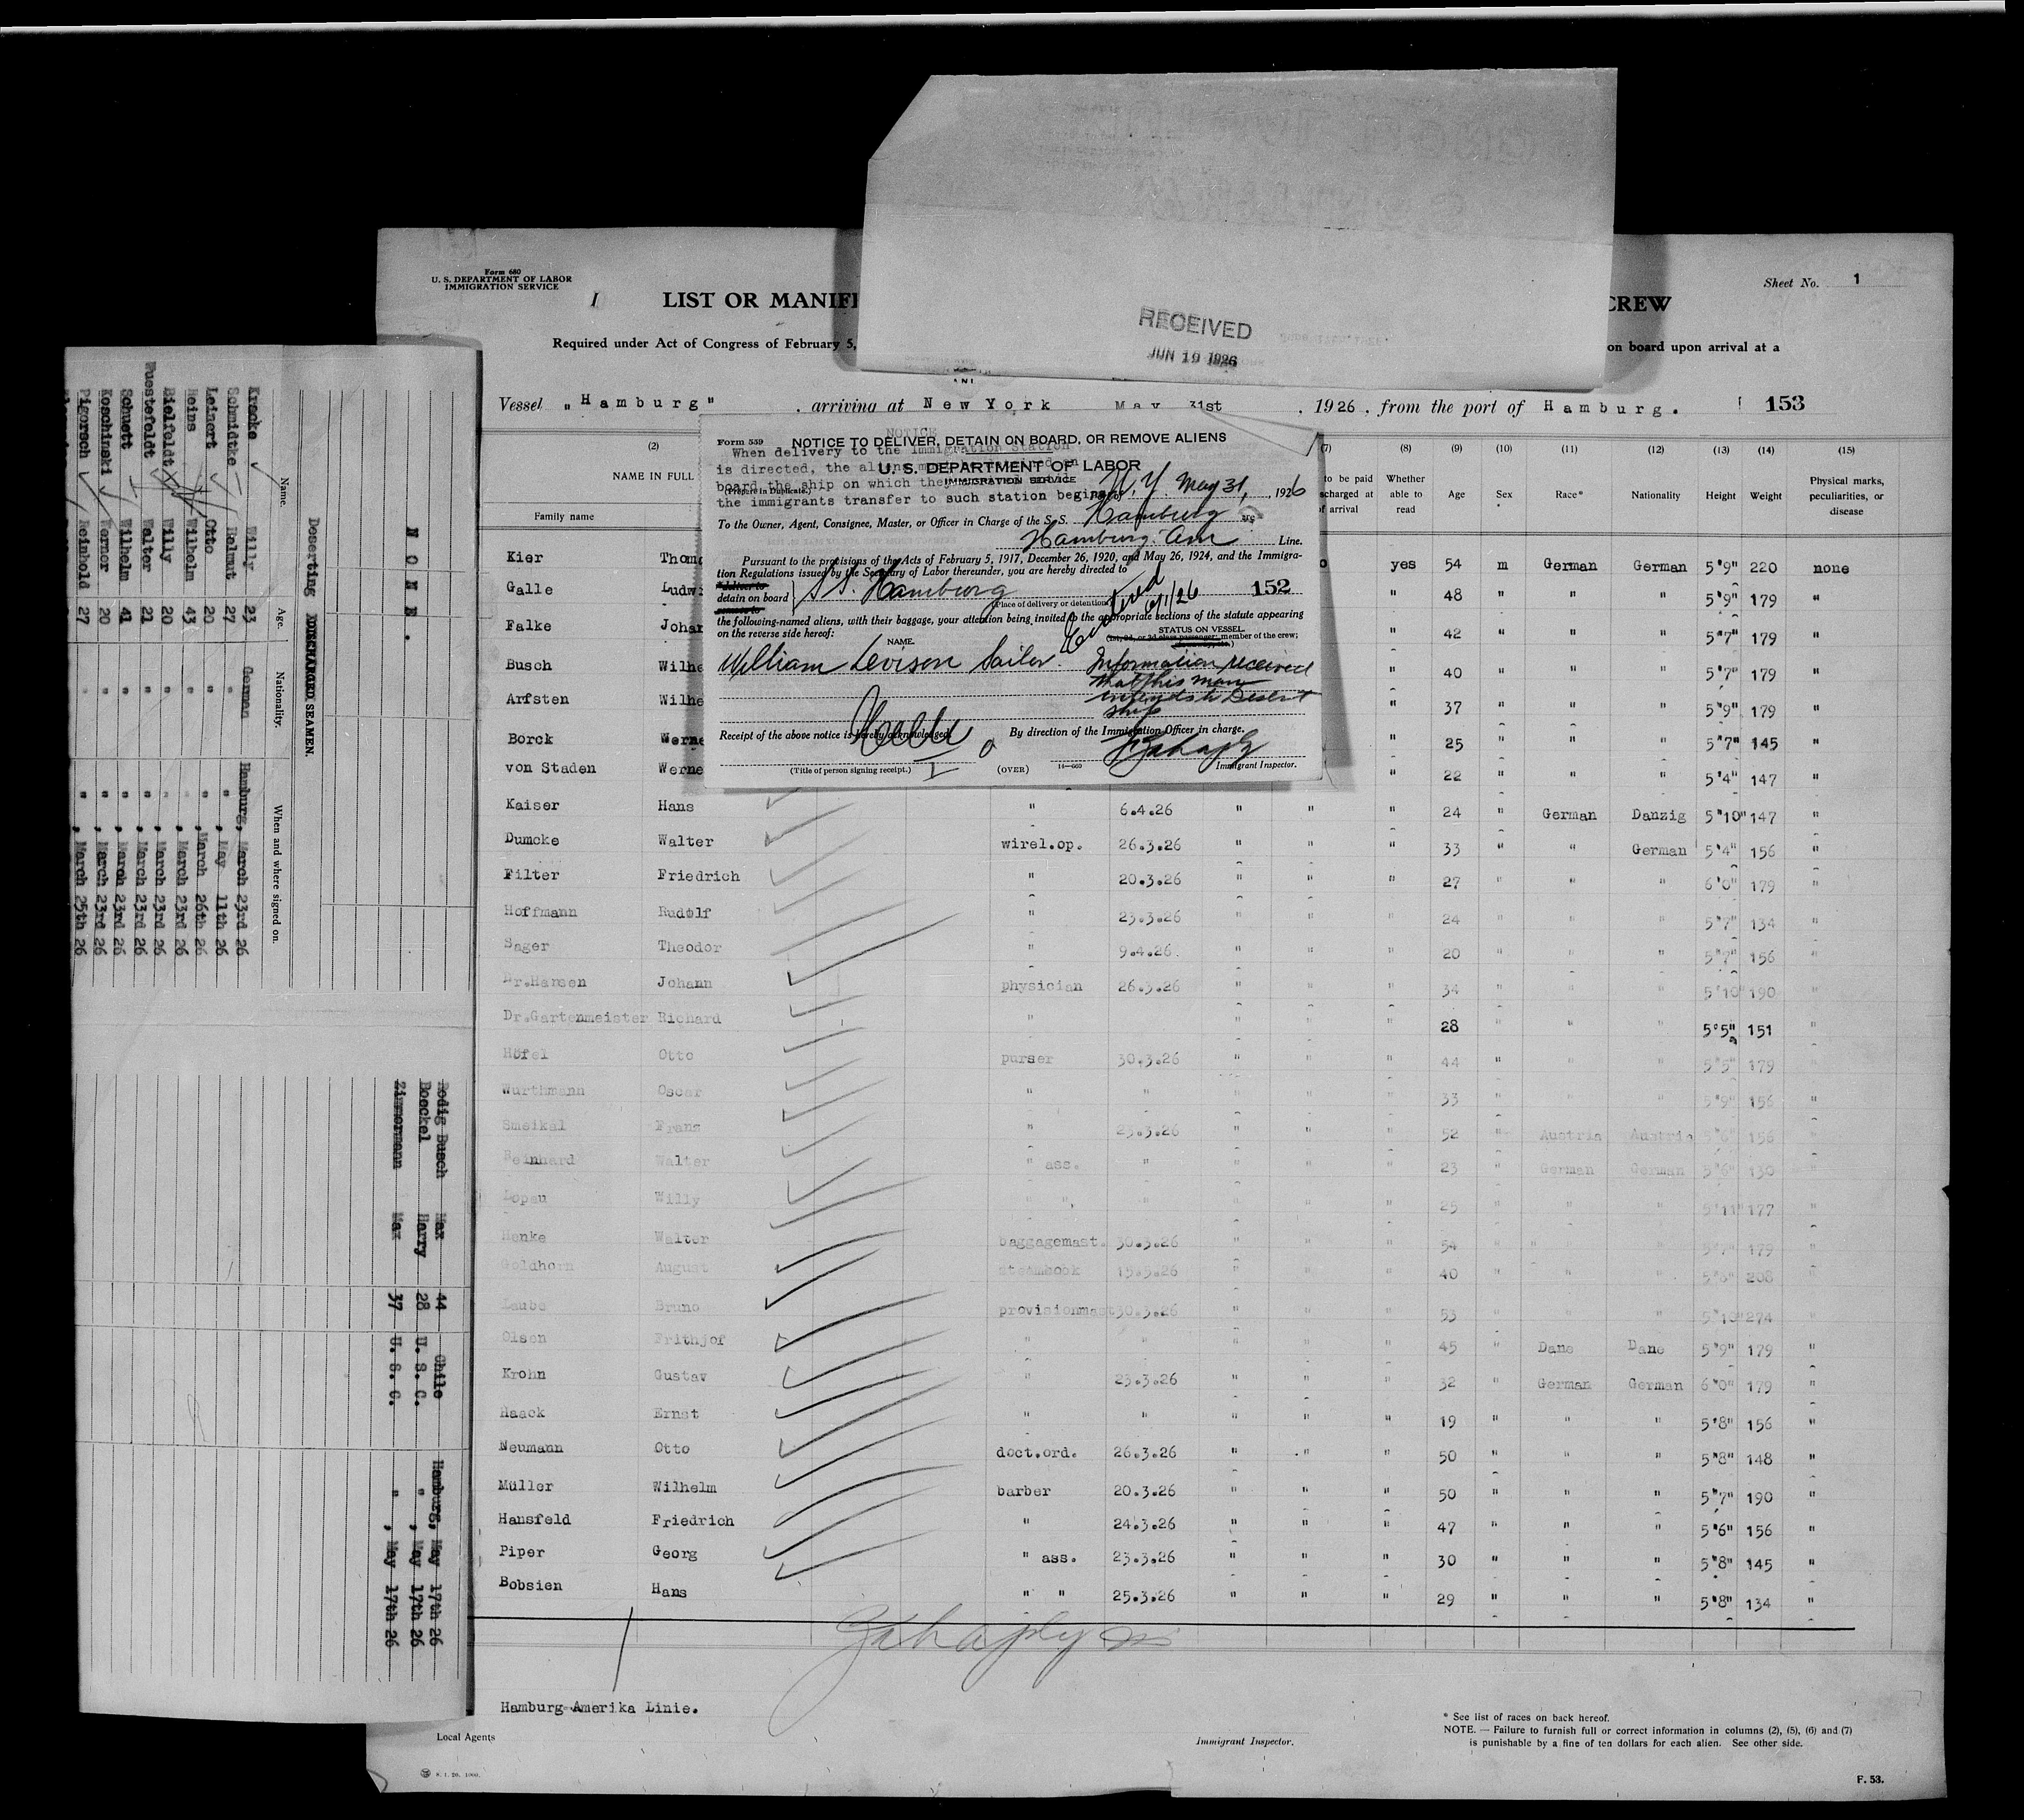 RECEIVED
JUN 19 1926
Form 680
U. S. DEPARTMENT OF LABOR
IMMIGRATION SERVICE
Sheet No. 1
I LIST OR MANIF CREW
Required under Act of Congress of February 5, on board upon arrival at a
Vessel "Hamburg", arriving at New York May 31st, 1926, from the port of Hamburg. 153
(2) (7) (8) (9) (10) (11) (12) (13) (14) (15)
NAME IN FULL
Family name
to be paid
at
of arrival
Whether able to read
Age Sex Race* Nationality Height Weight
Physical marks, peculiarities, or disease
Form 559 NOTICE TO DELIVER, DETAIN ON BOARD, OR REMOVE ALIENS
NOTICE
When delivery to the Immigration Station
is directed, the
U. S. DEPARTMENT OF LABOR
board the ship on which they
IMMIGRATION SERVICE
(Prepare in Duplicate.)
the immigrants transfer to such station begins.
N. Y. May 31, 1926
To the Owner, Agent, Consignee, Master, or Officer in Charge of the S. S. Hamburg
Hamburg. Am Line.
Pursuant to the provisions of the Acts of February 5, 1917, December 26, 1920, and May 26, 1924, and the Immigra-
tion Regulations issued by the Secretary of Labor thereunder, you are hereby directed to
detain on board } S.S. Hamburg 152
(Place of delivery or detention)
Cancelled 6/1/26
the following-named aliens, with their baggage, your attention being invited to the appropriate sections of the statute appearing
on the reverse side hereof:
NAME. STATUS ON VESSEL
member of the crew;
William Levison Sailor. Information received
that this man
intends to Desert
ship
Receipt of the above notice is hereby acknowledged. By direction of the Immigration Officer in charge.
(Title of person signing receipt.) (OVER) 14—669 Immigrant Inspector.
Kier Thom yes 54 m German German 5'9" 220 none
Galle Ludwi " 48 " " " 5'9" 179 "
Falke Johan " 42 " " " 5'7" 179 "
Busch Wilhe " 40 " " " 5'7" 179 "
Arfsten Wilhe " 37 " " " 5'9" 179 "
Borck Werne " 25 " " " 5'7" 145 "
von Staden Werne " 22 " " " 5'4" 147 "
Kaiser Hans " 6.4.26 " " " 24 " German Danzig 5'10" 147 "
Dumcke Walter wirel.op. 26.3.26 " " " 33 " " German 5'4" 156 "
Filter Friedrich " 20.3.26 " " " 27 " " " 6'0" 179 "
Hoffmann Rudolf " 23.3.26 " " " 24 " " " 5'7" 134 "
Sager Theodor " 9.4.26. " " " 20 " " " 5'7" 156 "
Dr.Hansen Johann physician 26.3.26 " " " 34 " " " 5'10 190 "
Dr.Gartenmeister Richard " " " " 28 " " " 5'5" 151 "
Höfel Otto purser 30.3.26 " " " 44 " " " 5'5" 179 "
Wurthmann Oscar " " " " " 33 " " " 5'9" 156 "
Smeikal Franz " 23.3.26 " " " 52 " Austria Austria 5'6" 156 "
Reinhard Walter " ass. " " " " 23 " German German 5'6" 130 "
Lopau Willy " " " " " " 25 " " " 5'11" 177 "
Henke Walter baggagemast. 30.3.26 " " " 54 " " " 5'7" 179 "
Goldhorn August steamcook 15.3.26 " " " 40 " " " 5'8" 208 "
Laube Bruno provisionmast 30.3.26 " " " 53 " " " 5'10" 274 "
Olsen Frithjof " " " " " 45 " Dane Dane 5'9" 179 "
Krohn Gustav " 23.3.26 " " " 32 " German German 6'0" 179 "
Haack Ernst " " " " " 19 " " " 5'8" 156 "
Neumann Otto doct.ord. 26.3.26 " " " 50 " " " 5'8" 148 "
Müller Wilhelm barber 20.3.26 " " " 50 " " " 5'7" 190 "
Hansfeld Friedrich " 24.3.26 " " " 47 " " " 5'6" 156 "
Piper Georg " ass. 23.3.26 " " " 30 " " " 5'8" 145 "
Bobsien Hans " " 25.3.26 " " " 29 " " " 5'8" 134 "
Hamburg-Amerika Linie.
Local Agents
Immigrant Inspector.
* See list of races on back hereof.
NOTE. — Failure to furnish full or correct information in columns (2), (5), (6) and (7)
is punishable by a fine of ten dollars for each alien. See other side.
F. 53.
NONE.
Deserting DISCHARGED SEAMEN.
Name. Age. Nationality. When and where signed on.
Kracke Willy 23 German Hamburg, March 23rd 26
Schmidtke Helmut 27 " " , May 11th 26
Leinert Otto 20 " " , March 26th 26
Heins Wilhelm 43 " " , March 23rd 26
Bielfeldt Willy 20 " " , March 23rd 26
Wuestefeldt Walter 21 " " , March 23rd 26
Schuett Wilhelm 41 " " , March 23rd 26
Koschinski Werner 20 " " , March 23rd 26
Pigorsch Reinhold 27 " " , March 25th 26
Rodig Busch Max 44 Chile Hamburg, May 17th 26
Boeckel Harry 28 U. S. C. " , May 17th 26
Zimmermann Max 37 U. S. C. " , May 17th 26